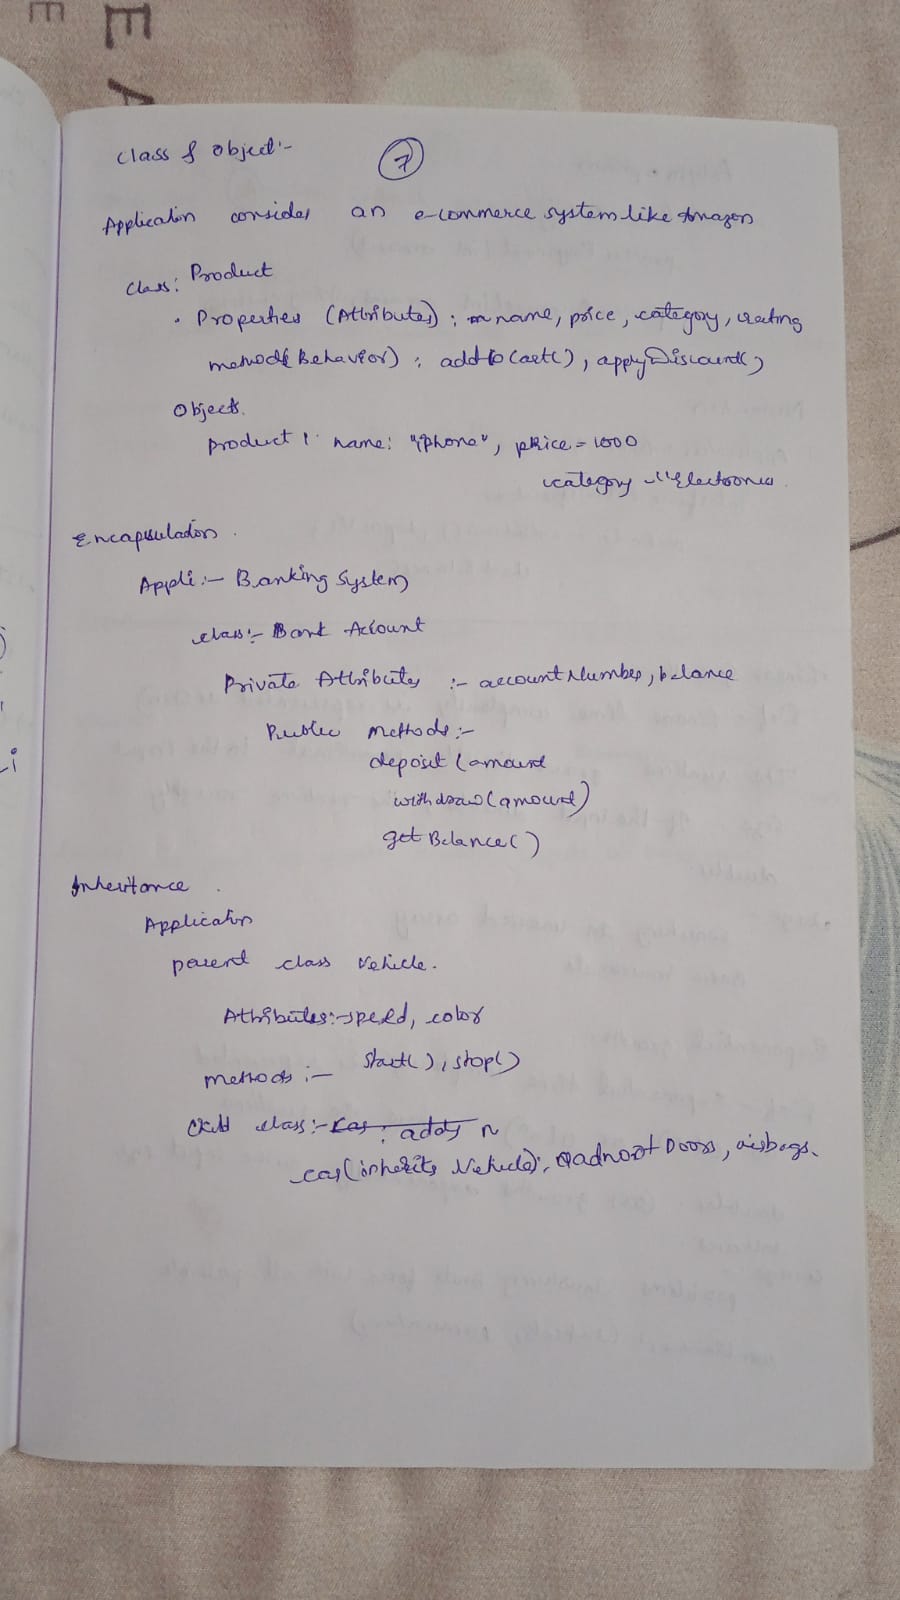 E
E A
Class & Object:-
7
Application consider an e-commerce system like Amazon
class: Product
. Properties (Attributes) : name, price, category, rating
methods(Behavior) : addtoCart(), applyDiscount()
Objects.
Product 1: name: "iphone", price = 1000
category - "Electronics
Encapsulation .
Appli :- Banking System
class:- Bank Account
Private Attributes :- accountNumber, balance
Public methods :-
deposit (amount
withdraw(amount)
getBalance()
Inheritance .
Application
parent class Vehicle.
Attributes:- speed, color
methods :- start(), stop()
Child class:- Car : adds n
car(inherits Vehicle): Doors, airbags.